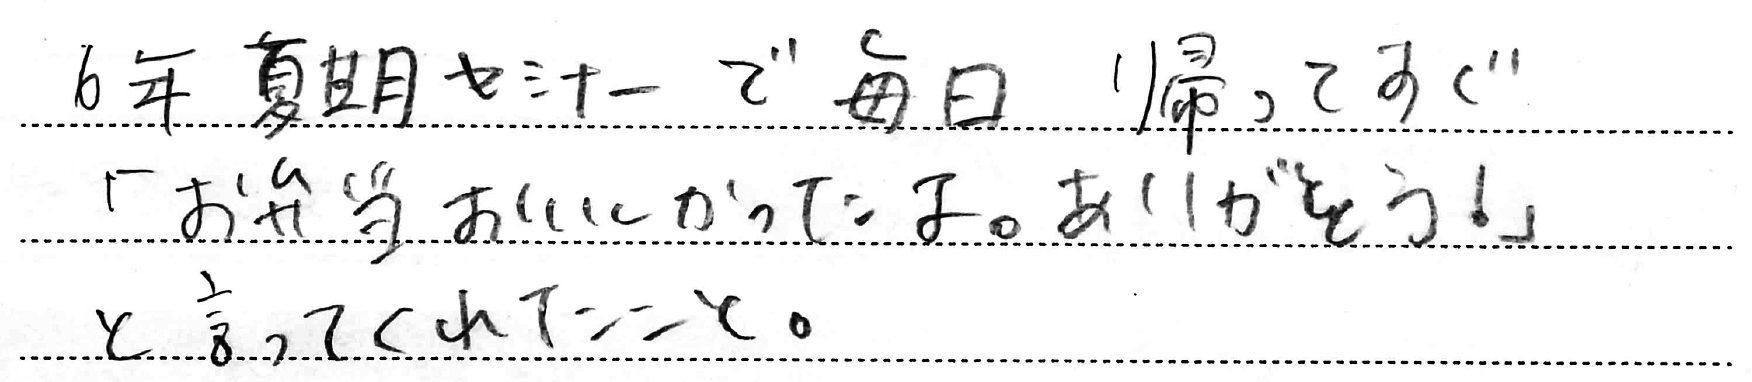 6年夏期セミナーで毎日 帰ってすぐ
「お弁当おいしかったよ。ありがとう!」
と言ってくれたこと。